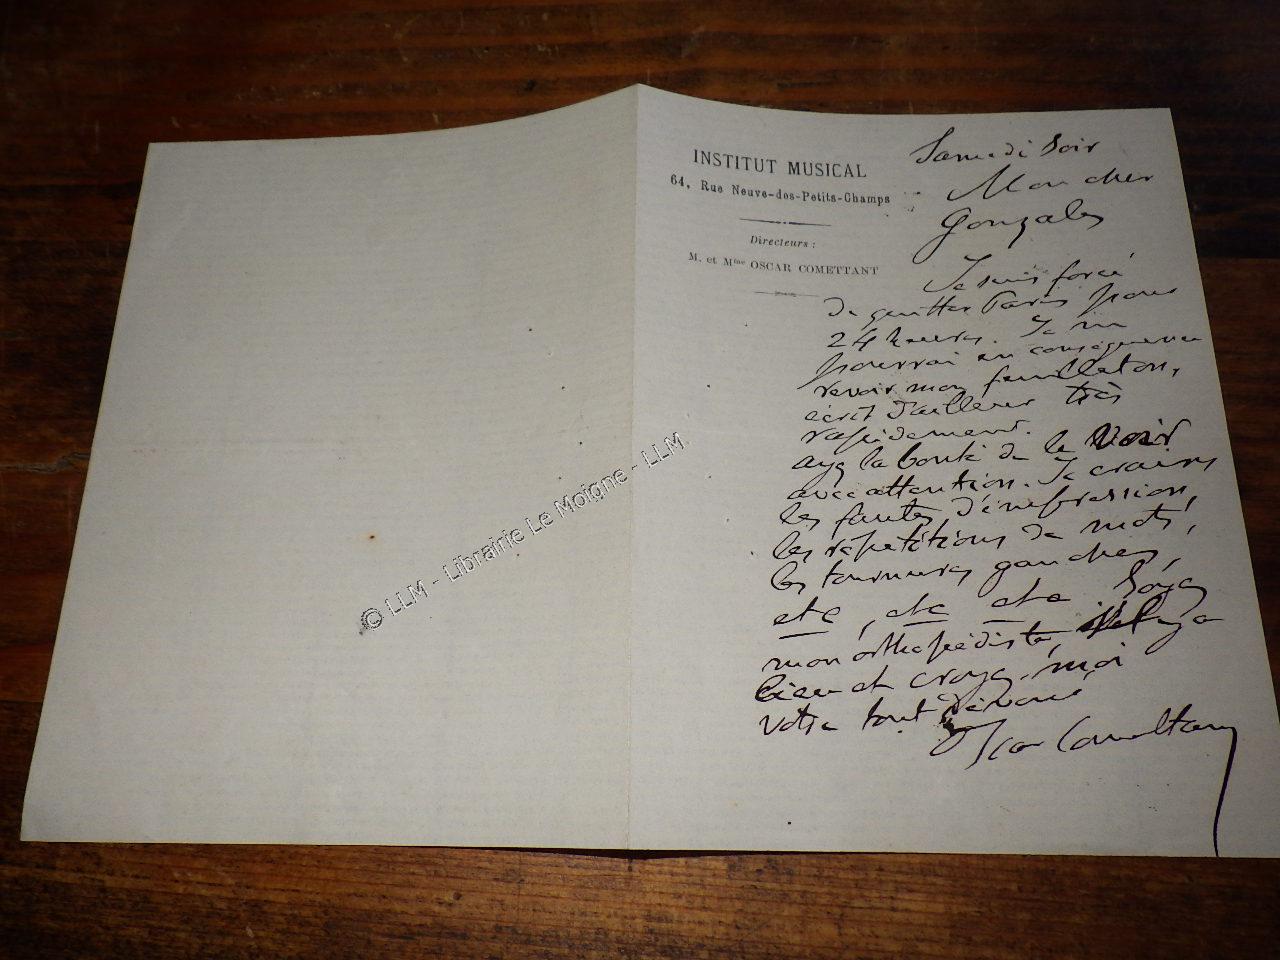 INSTITUT MUSICAL
64, Rue Neuve-des-Petits-Champs
Directeurs :
M. et Mme OSCAR COMETTANT
Samedi Soir
Mon cher
Gonzalès
Je suis forcé
de quitter Paris pour
24 heures. Je ne
pourrai en conséquence
revoir mon feuilleton,
écrit d'ailleurs très
rapidement.
ayez la bonté de le voir
avec attention. Je crains
les fautes d'impression,
les répétitions de mots,
les tournures gauches,
etc, etc etc Soyez
mon orthopédiste,
bien et croyez-moi
votre tout dévoué,
Oscar Comettant
© LLM - Librairie Le Moigne - LLM.